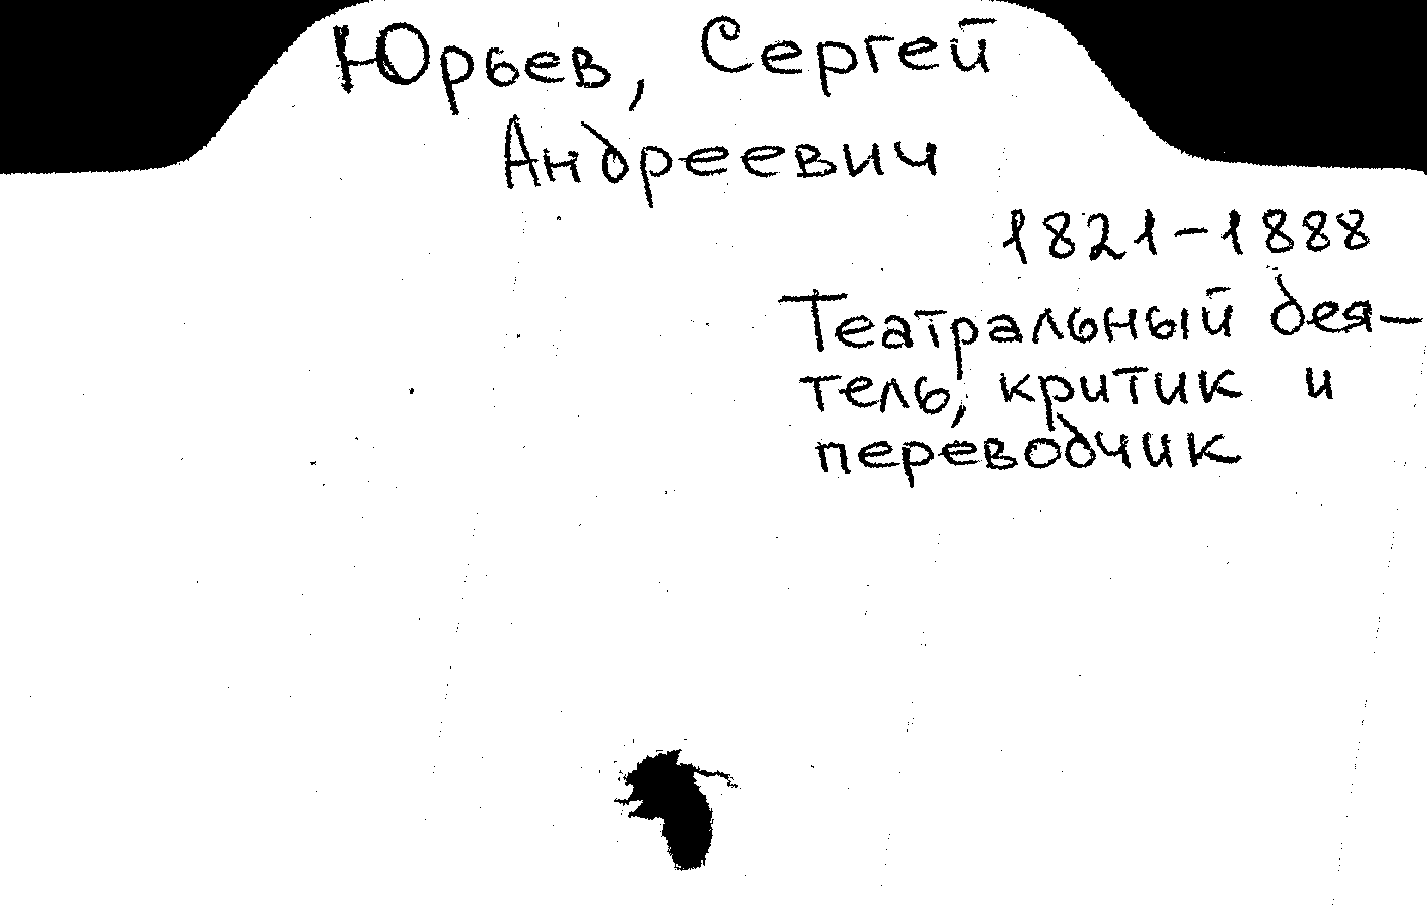 Юрьев, Сергей
Андреевич
1821-1888
Театральный дея-
тель, критик и
переводчик